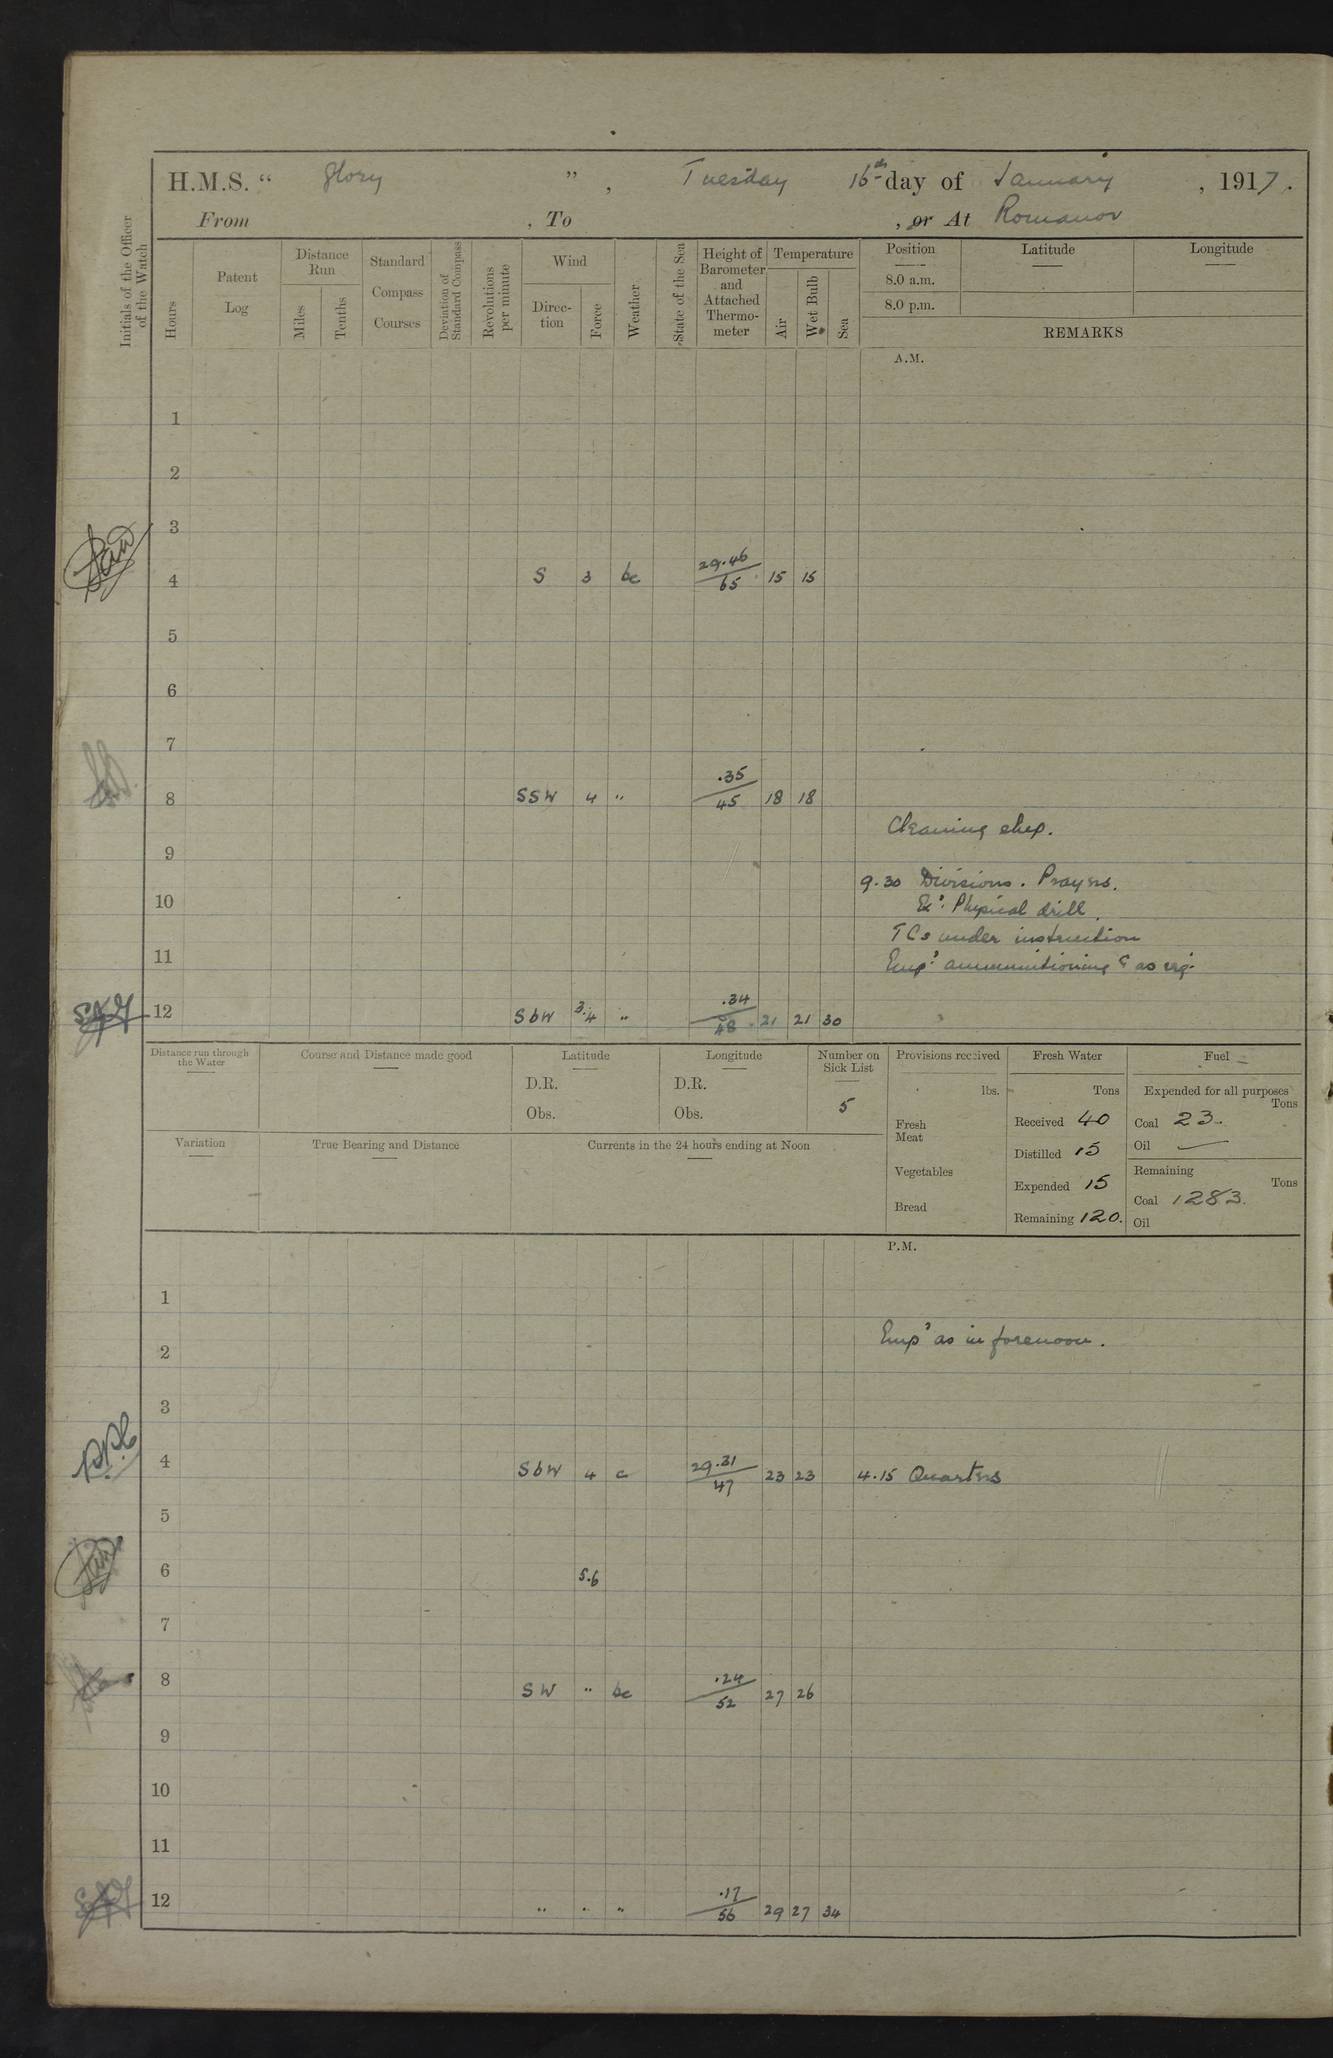 H.M.S. “ Glory ” , Tuesday 16th day of January , 1917.
From , To , or At Romanov
Initials of the Officer of the Watch
Hours
Patent Log
Distance Run
Miles
Tenths
Standard Compass Courses
Deviation of Standard Compass
Revolutions per minute
Wind
Direction
Force
Weather
State of the Sea
Height of Barometer and Attached Thermometer
Temperature
Air
Wet Bulb
Sea
Position Latitude Longitude
8.0 a.m.
8.0 p.m.
REMARKS
A.M.
1
2
3
4 S 3 bc 29.46/65 15 15
5
6
7
8 SSW 4 " .35/45 18 18
Cleaning ship.
9
9.30 Divisions. Prayers.
10
Physical drill.
TCs under instruction
11
Emp? ammunitioning & as req.
SAG 12 SbW 3.4 " .34/48 21 21 30
Distance run through the Water
Course and Distance made good
Latitude
D.R.
Obs.
Longitude
D.R.
Obs.
Number on Sick List
5
Provisions received
lbs.
Fresh Meat
Vegetables
Bread
Fresh Water
Tons
Received 40
Distilled 15
Expended 15
Remaining 120.
Fuel
Expended for all purposes
Tons
Coal 23.
Oil —
Remaining
Tons
Coal 1283.
Oil
Variation
True Bearing and Distance
Currents in the 24 hours ending at Noon
P.M.
1
Emp? as in forenoon.
2
3
4 SbW 4 c 29.31/47 23 23 4.15 Quarters
5
6 5.6
7
8 SW " bc .24/52 27 26
9
10
11
SAG 12 " " " .17/56 29 27 34